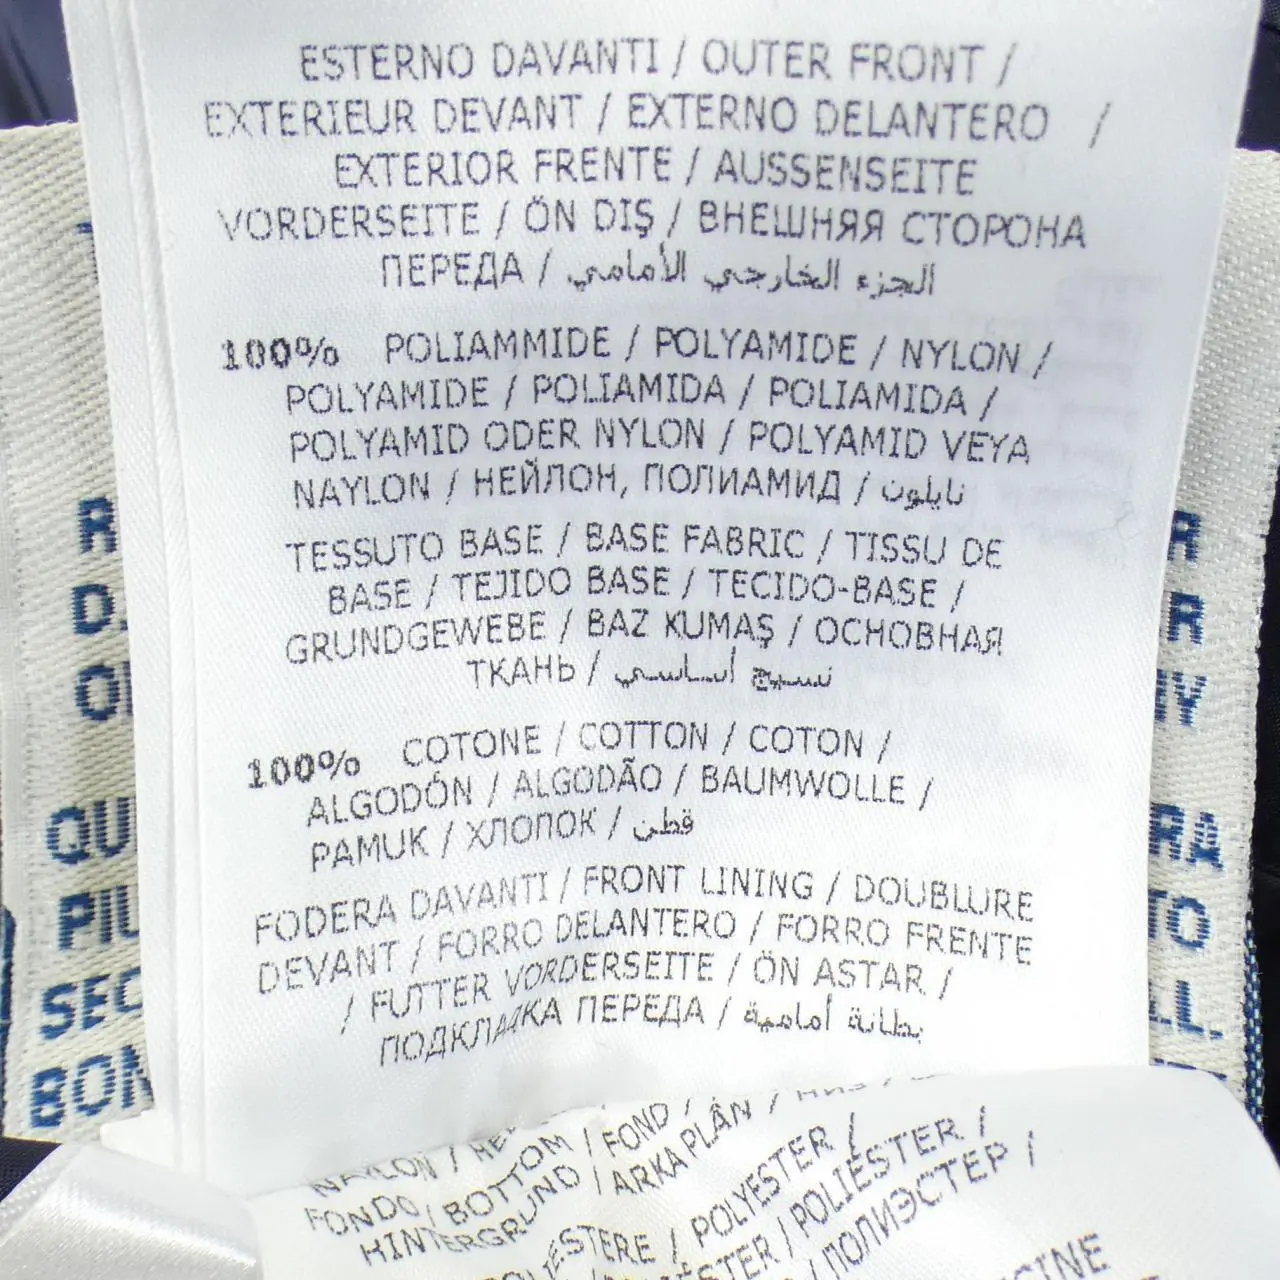 ESTERNO DAVANTI / OUTER FRONT /
EXTERIEUR DEVANT / EXTERNO DELANTERO /
EXTERIOR FRENTE / AUSSENSEITE
VORDERSEITE / ÖN DIŞ / ВНЕШНЯЯ СТОРОНА
ПЕРЕДА / الجزء الخارجي الأمامي
100% POLIAMMIDE / POLYAMIDE / NYLON /
POLYAMIDE / POLIAMIDA / POLIAMIDA /
POLYAMID ODER NYLON / POLYAMID VEYA
NAYLON / НЕЙЛОН, ПОЛИАМИД / نايلون
TESSUTO BASE / BASE FABRIC / TISSU DE
BASE / TEJIDO BASE / TECIDO-BASE /
GRUNDGEWEBE / BAZ KUMAŞ / ОСНОВНАЯ
ТКАНЬ / نسيج أساسي
100% COTONE / COTTON / COTON /
ALGODÓN / ALGODÃO / BAUMWOLLE /
PAMUK / ХЛОПОК / قطن
FODERA DAVANTI / FRONT LINING / DOUBLURE
DEVANT / FORRO DELANTERO / FORRO FRENTE
/ FUTTER VORDERSEITE / ÖN ASTAR /
ПОДКЛАДКА ПЕРЕДА / بطانة أمامية
NAYLON /
FONDO / BOTTOM / FOND /
HINTERGRUND / ARKA PLÂN /
POLYESTER /
/ POLIÉSTER /
/ ПОЛИЭСТЕР /